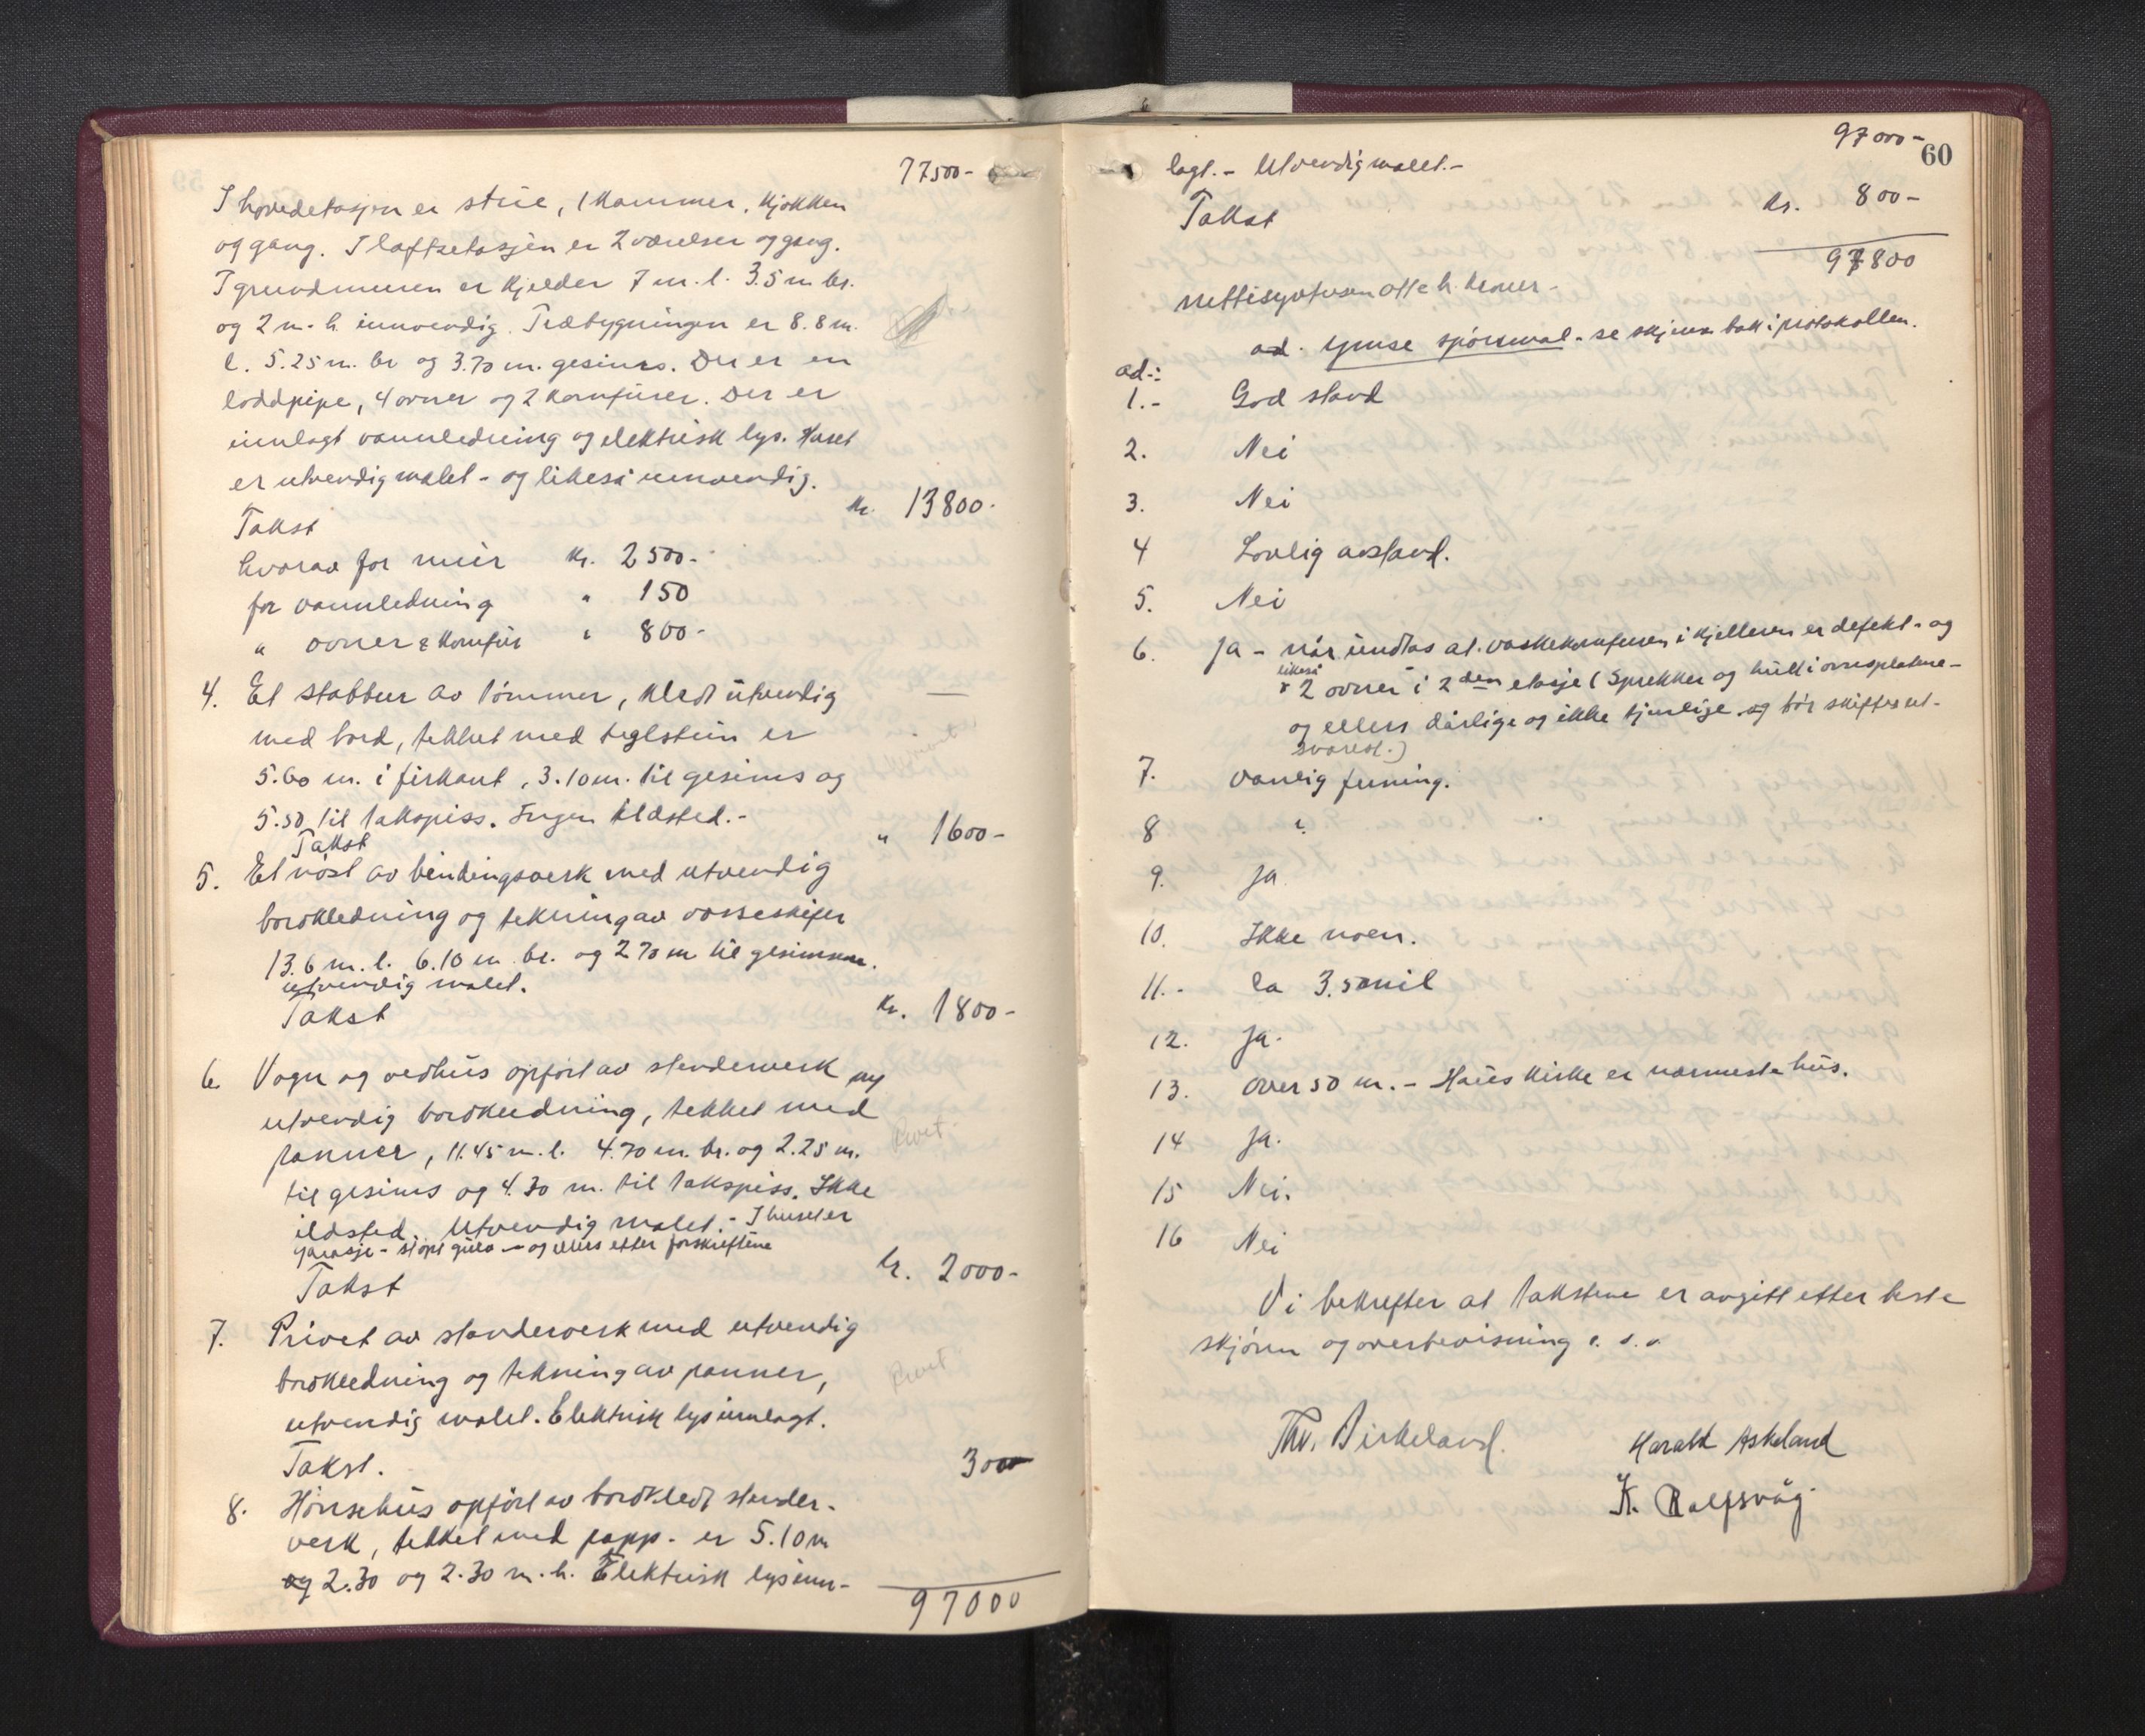 77500-
I hovedetasjen er stue, 1 kammer, kjøkken
og gang. I loftsetasjen er 2 værelser og gang.
I grundmuren er kjelder 7 m. l. 3.5 m br.
og 2 m. h. innvendig. Træbygningen er 8.8 m.
l. 5.25 m. br og 3.70 m. gesims. Der er en
loddpipe, 4 ovner og 2 komfurer. Der er
innlagt vannledning og elektrisk lys. Huset
er utvendig malet - og likeså innvendig.
Takst kr. 13800.
hvorav for mur kr. 2500.-
for vannledning " 150
" ovner & komfur " 800-
4. Et stabbur av tømmer, kledt utvendig
med bord, tekket med teglstein er
5.60 m. i firkant, 3.10 m. til gesims og
5.50 til takspiss. Ingen ildsted.-
Takst " 1600-
5. Et nøst av bindingsverk med utvendig
bordkledning og tekning av vosseskifer
13.6 m. l. 6.10 m. br. og 2.70 m til gesimsen.
utvendig malet.
Takst Kr. 1800-
6. Vogn og vedhus opført av stenderverk og
utvendig bordkledning, tekket med
panner, 11.45 m. l. 4.70 m. br. og 2.25 m. Privet
til gesims og 4.30 m. til takspiss. Ikke
ildsted. Utvendig malet.- I huset er
garasje - støpt gulv - og ellers etter forskriftene
Takst kr. 2000-
7. Privet av stenderverk med utvendig
bordkledning og tekning av panner, Privet
utvendig malet. Elektrisk lys innlagt.
Takst. 300
8. Hønsehus opført av bordkledt stender-
verk, tekket med papp. er 5.10 m
og 2.30 og 2.30 m. h. Elektrisk lys inn-
97000
97000-
60
lagt.- Utvendig malet.-
Takst kr. 800-
97800
nitisyvtusen otte h. kroner-
ad. ymse spørsmål - se skjema bak i protokollen.
ad.:
1.- God stand
2. Nei
3. Nei
4 Lovlig avstand.
5. Nei
6. Ja - når undtas at vaskekomfuren i kjelleren er defekt - og
likeså
2 ovner i 2den etasje (Sprekker og hull i ovnsplatene-
og ellers dårlige og ikke tjenlige og bør skiftes ut-
snarest.)
7. vanlig fuming.
8 "
9. Ja
10. Ikke noen.
11.- ca 3.50 mil
12. Ja.
13. over 50 m.- Haus kirke er nærmeste hus.
14 Ja.
15 Nei.
16 Nei
Vi bekrefter at takstene er avgitt etter beste
skjønn og overbevisning o. s. v.
Thv. Birkeland. Harald Askeland
K. Rolfsvåg.